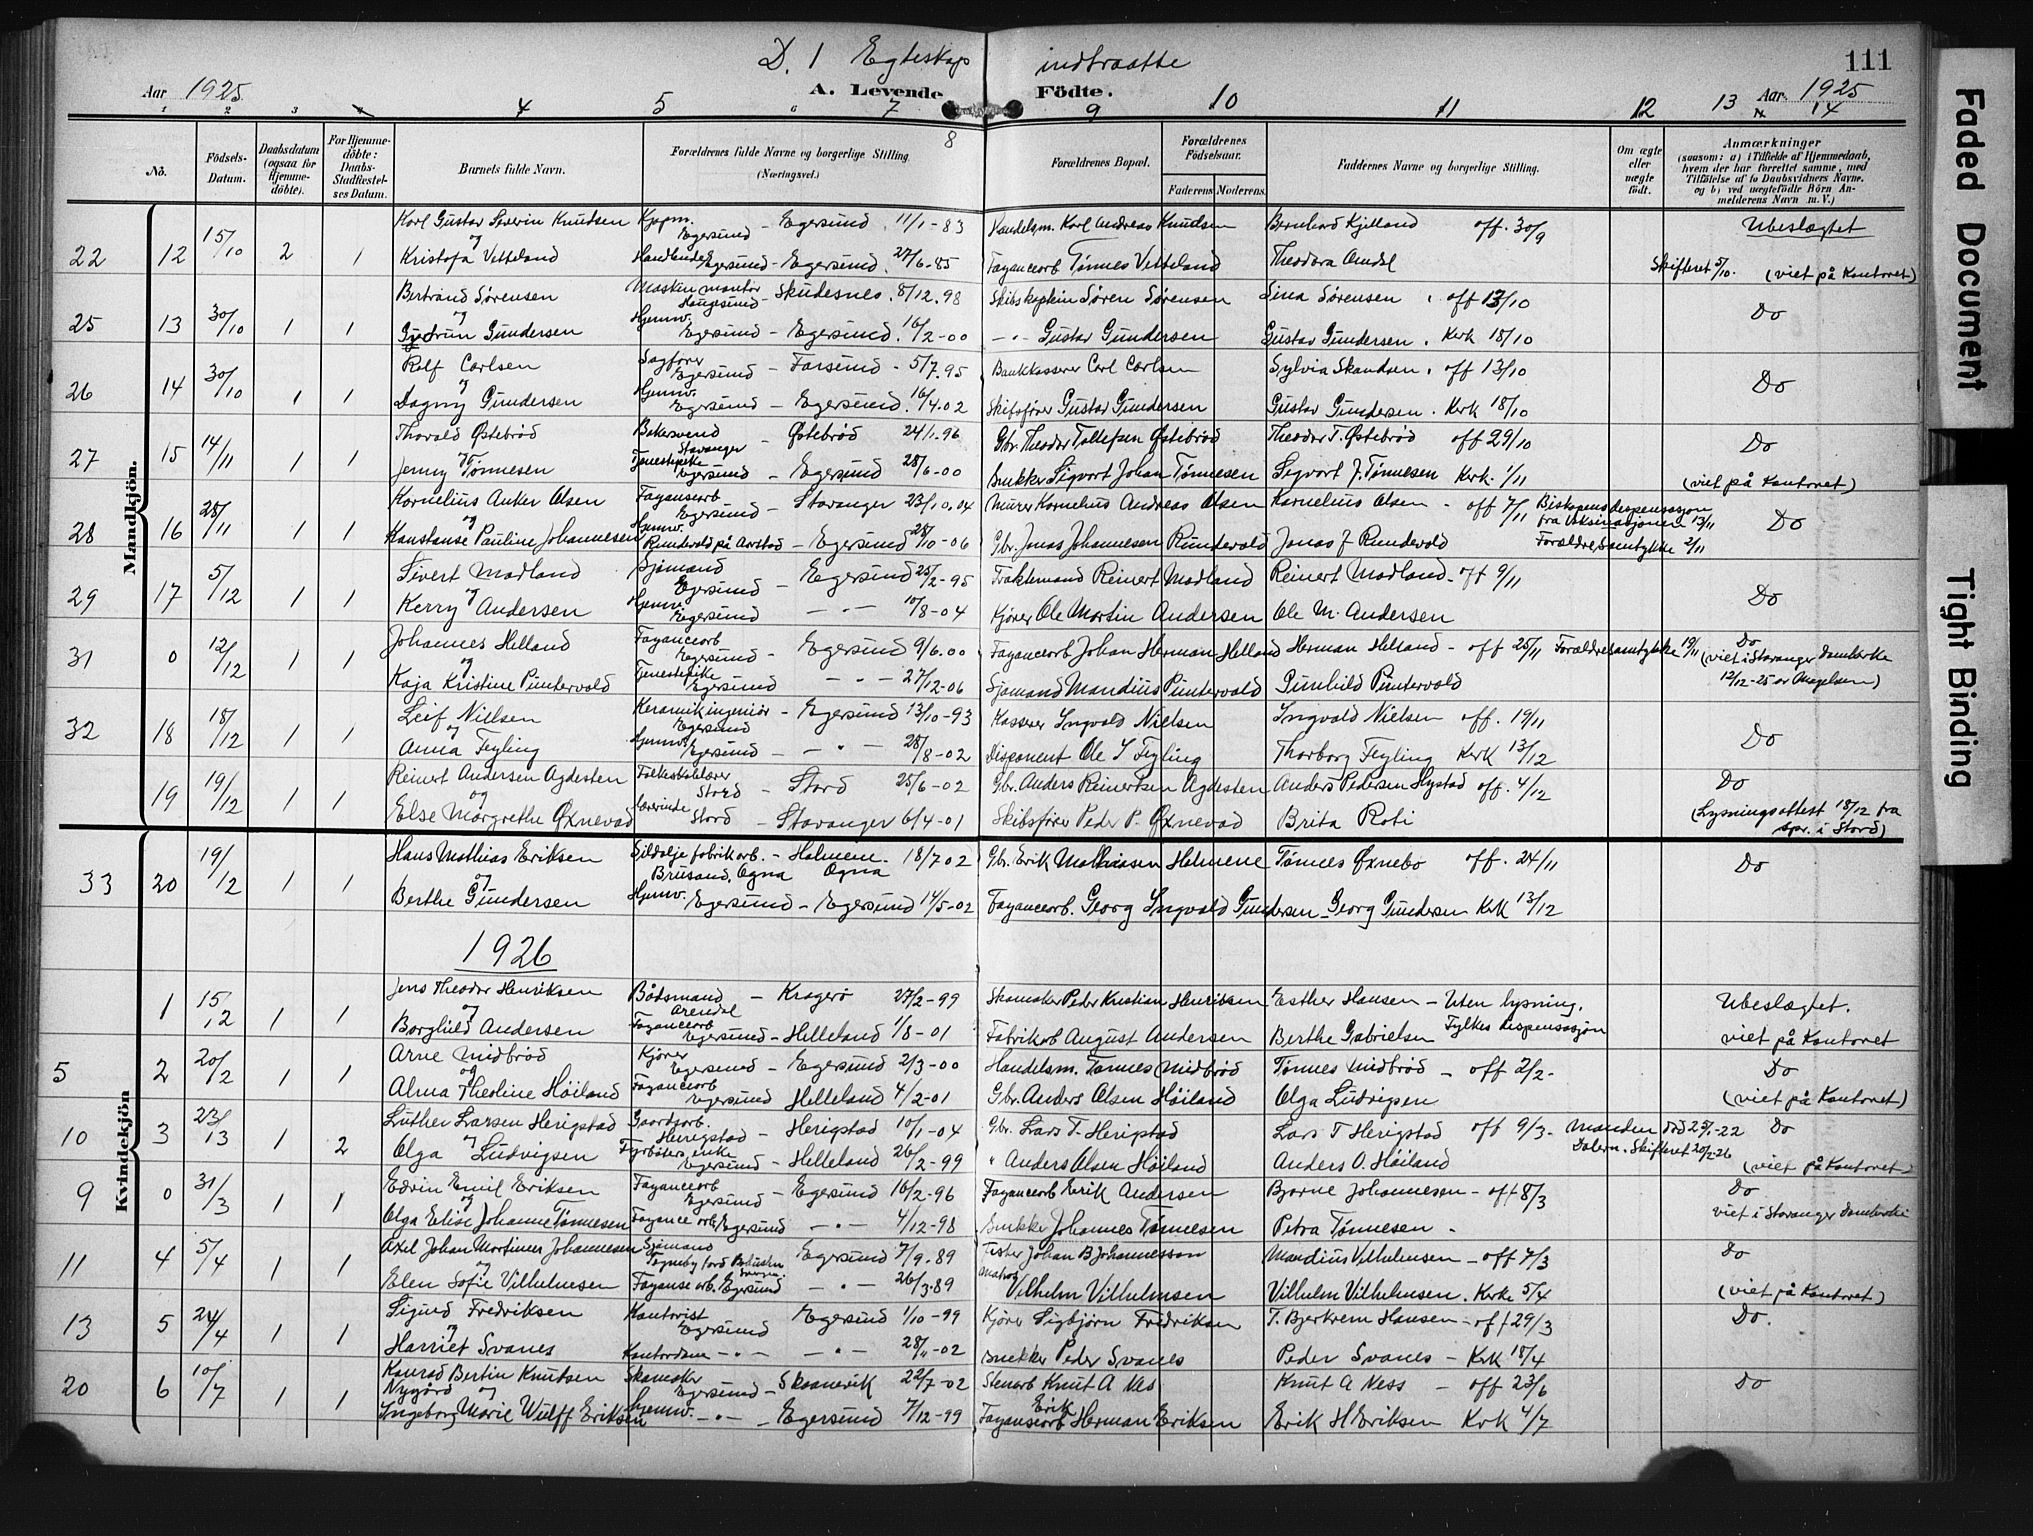 D. 1 Egteskap indtraatte
111
Aar 1925
A. Levende Födte.
Aar 1925
1 2 3 4 5 6 7 8 9 10 11 12 13 14
No.
Födsels-Datum.
Daabsdatum (ogsaa for Hjemmedöbte).
For Hjemmedöbte: Daabs-Stadfæstelses Datum.
Barnets fulde Navn.
Forældrenes fulde Navne og borgerlige Stilling. (Næringsvei.)
Forældrenes Bopæl.
Forældrenes Födselsaar.
Faderens Moderens
Faddernes Navne og borgerlige Stilling.
Om ægte eller uægte født.
Anmærkninger
(saasom: a) i Tilfælde af Hjemmedaab, hvem der har forrettet samme, med Tilføielse af to Daabsvidners Navne, og b) ved uægtefødte Börn Anmelderens Navn m. V.)
Mandkjön.
Karl Gustav Severin Knudsen Kjøpm. Egersund - Egersund 11/1-83 Handelsm. Karl Andreas Knudsen Bernhard Kjelland off. 30/9 Ubeslægtet
22 12 15/10 2 1 og
Kristofa Vetteland Egersund - Egersund 27/6-85 Fayancearb Tønnes Vetteland Theodora Omdal Skifteret 5/10. (viet på Kontoret)
Bertrand Sørensen Maskinmontør Haugesund - Skudesnes 8/12.98 Skibskaptein Søren Sørensen Sina Sørensen off 13/10
25 13 30/10 1 1 og Do
Gudrun Gundersen Hjemv. Egersund - Egersund 16/2-00 -"- Gustav Gundersen Gustav Gundersen. Kerk 18/10
Rolf Carlsen Sagfører Egersund - Farsund - 5/7.95 Bankkasserer Carl Carlsen Sylvia Skandsen. off 13/10
26 14 30/10 1 1 og Do
Dagny Gundersen Hjemv. Egersund - Egersund 16/4-02 Skibsfører Gustav Gundersen Gustav Gundersen. Kerk 18/10
Thorald Østebrød Bakersvend Stavanger - Østebrød 24/1-96 Gbr. Theodor Tollefsen Østebrød Theodor T. Østebrød off 29/10
27 15 14/11 1 1 og Do
Jenny Tønnesen Tjenestepike Egersund - Egersund 28/6-00 Snekker Sigvart Johan Tønnesen Sigvart J. Tønnesen Kerk. 1/11 (viet på Kontoret)
Kornelius Anker Olsen Fayansearb Egersund - Stavanger 23/10.04 Murer Kornelius Andreas Olsen Kornelius Olsen - off 7/11 Biskopensdespensasjon fra Vaksinasjonen 13/11
28 16 28/11 1 1 og Do
Konstanse Pauline Johannesen Hjemv. Rundevold på Aarstad - Egersund 28/10-06 Gbr. Jonas Johannesen Rundevold Jonas J Rundevold Forældresamtykke 2/11
Sivert Madland Sjømand Egersund - Egersund 25/2-95 Fraktemand Reinert Madland Reinert Madland - off 9/11
29 17 5/12 1 1 og Do
Kerry Andersen Hjemv. Egersund -"- 10/8-04 Kjører Ole Martin Andersen Ole M. Andersen
Johannes Helland Fayancearb Egersund - Egersund 9/6.00 Fayancearb Johan Herman Helland Herman Helland - off 25/11 Forældresamtykke 19/11 Do
31 0 12/12 1 1 og (viet i Stavanger Domkerke
Kaja Kristine Puntervold Tjenestepike Egersund -"- 27/12-06 Sjømand Mandius Puntervold Gunhild Puntervold 12/12-25 av Magelsen)
Leif Nielsen Keramikingeniør Egersund - Egersund 13/10-93 Kasserer Ingvald Nielsen Ingvald Nielsen off. 19/11
32 18 18/12 1 1 og Do
Anna Feyling Hjemv. Egersund -"- 28/8-02 Disponent Ole I Feyling Thorborg Feyling Kerk 13/12
Reinert Andersen Agdesten Folkeskolelærer Stord - Stord 25/6-02 Gbr. Anders Reinertsen Agdesten Anders Pedersen off. 4/12 Do
19 19/12 1 1 og
Else Margrethe Øxnevad Lærerinde Stord - Stavanger 6/4-01 Skibsfører Peder P. Øxnevad Brita Roti (Lysningsattest 18/12 fra spr. i Stord)
Hans Mathias Eriksen Sildoljefabrikarb. Brusand, Ogna - Holmene Ogna 18/7 02 Gbr. Erik Mathiasen Holmene Tønnes Øxnebo off. 24/11
33 20 19/12 1 1 og Do
Berthe Gundersen Hjemv. Egersund - Egersund 14/5-02 Fayancearb. Georg Ingvald Gundersen Georg Gundersen Kerk 13/12
1926
Kvindekjön
Jens Theodor Henriksen Bådsmand Arendal - Kragerø 27/2-99 Skomaker Peder Kristian Henriksen Esther Hansen - Uten lysning. Ubeslægtet.
1 15/12 1 1 og
Borghild Andersen Fayancearb Egersund - Helleland 1/8-01 Fabrikarb August Andersen Berthe Gabrielsen Fylkes dispensasjon viet på Kontoret
Arne Midbrød Kjører Egersund - Egersund 2/3-00 Handelsm. Tønnes Midbrød Tønnes Midbrød - off 2/2-
5 2 20/2 1 1 og Do
Alma Theoline Høiland Fayancearb Egersund Helleland 4/2-01 Gbr. Anders Olsen Høiland Olga Ludvigsen (viet på Kontoret)
Luther Larsen Herigstad Gaardsarb. Herigstad - Herigstad 10/1-04 Gbr. Lars T. Herigstad Lars T Herigstad off 9/3- Manden død 29/1-22 Do
10 3 23/13 1 2 og
Olga Ludvigsen Fyrbøters enke Egersund - Helleland 26/2-99 " Anders Olsen Høiland Anders O. Høiland Skifteret 20/2-26 (viet på Kontoret)
Edvin Emil Eriksen Fayancearb Egersund - Egersund 16/2-96 Fayancearb Erik Andersen Bjarne Johannesen - off 8/3 Do
9 0 31/3 1 1 og viet i Stavanger Domkerke
Olga Elise Johanne Tønnesen Fayancearb Egersund -"- 4/12-98 Snekker Johannes Tønnesen Petra Tønnesen -
Axel Johan Mortimer Johannesen Sjømand - Egersund 7/9.89 Fisker Johan B Johannesson Mandius Vilhelmsen - off 7/3 Do
11 4 5/4 1 1 og
Elen Sofie Vilhelmsen Fayansearb. Egersund -"- 26/3.89 Matros Vilhelm Vilhelmsen Vilhelm Vilhelmsen. Kerke 5/4 (viet på Kontoret)
Sigurd Fredriksen Kontorist Egersund Egersund 1/10-99 Kjører Sigbjørn Fredriksen T. Bjerkrem Hansen - off 29/3 Do.
13 5 24/4 1 1 og
Harriet Svanes Kontordame -"- -"- 28/11-02 Snekker Peder Svanes Peder Svanes - Kerk 18/4
Konrad Bertin Knutsen Nygård Skomaker Egersund - Skaanevik 22/7-02 Stenarb Knut A Nes Knut A Ness - off 23/6 Do
20 6 10/7 1 1 og
Ingeborg Marie Wulff Eriksen Hjemv. -"- Egersund 7/12-99 Fayansearb Erik Herman Eriksen Erik H Eriksen Kerk 4/7
Faded Document
Tight Binding